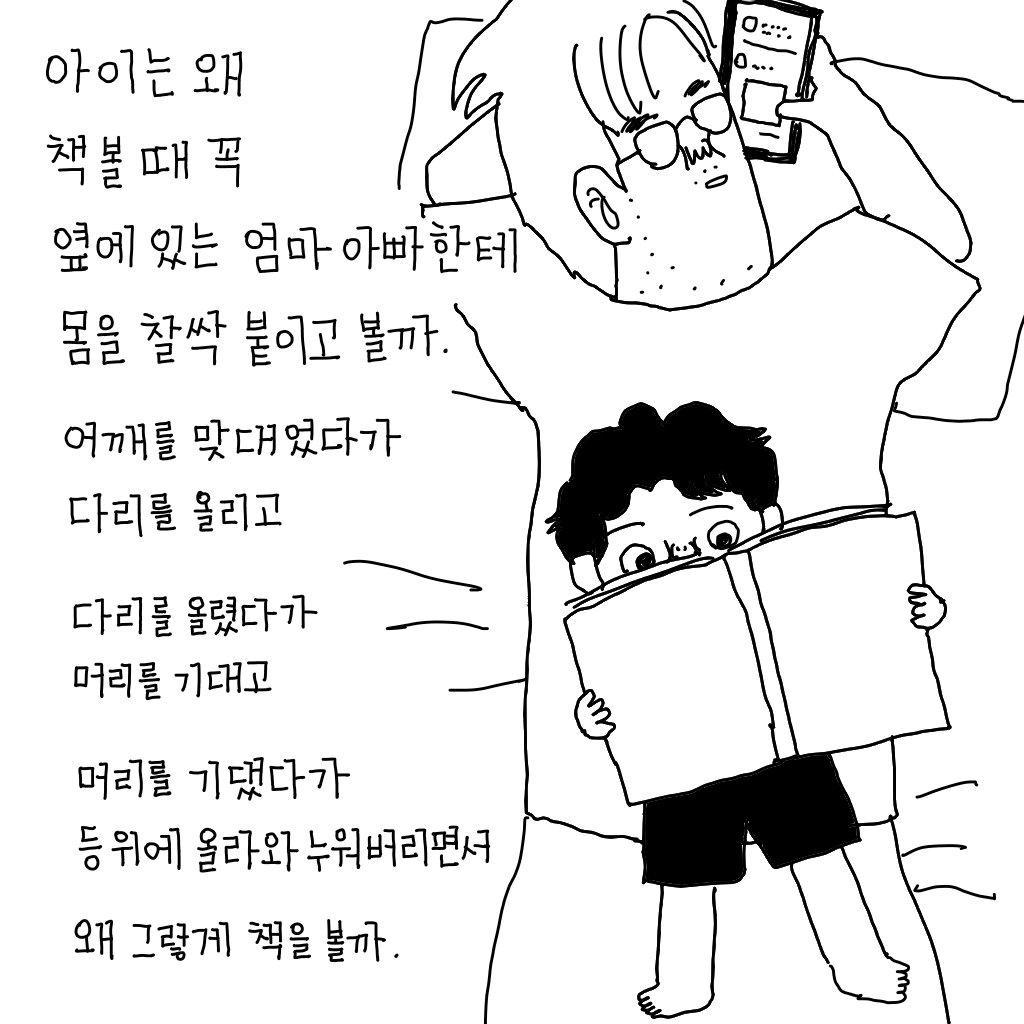 아이는 왜
책 볼 때 꼭
옆에 있는 엄마 아빠한테
몸을 찰싹 붙이고 볼까.
어깨를 맞대었다가
다리를 올리고
다리를 올렸다가
머리를 기대고
머리를 기댔다가
등 위에 올라와 누워버리면서
왜 그렇게 책을 볼까.